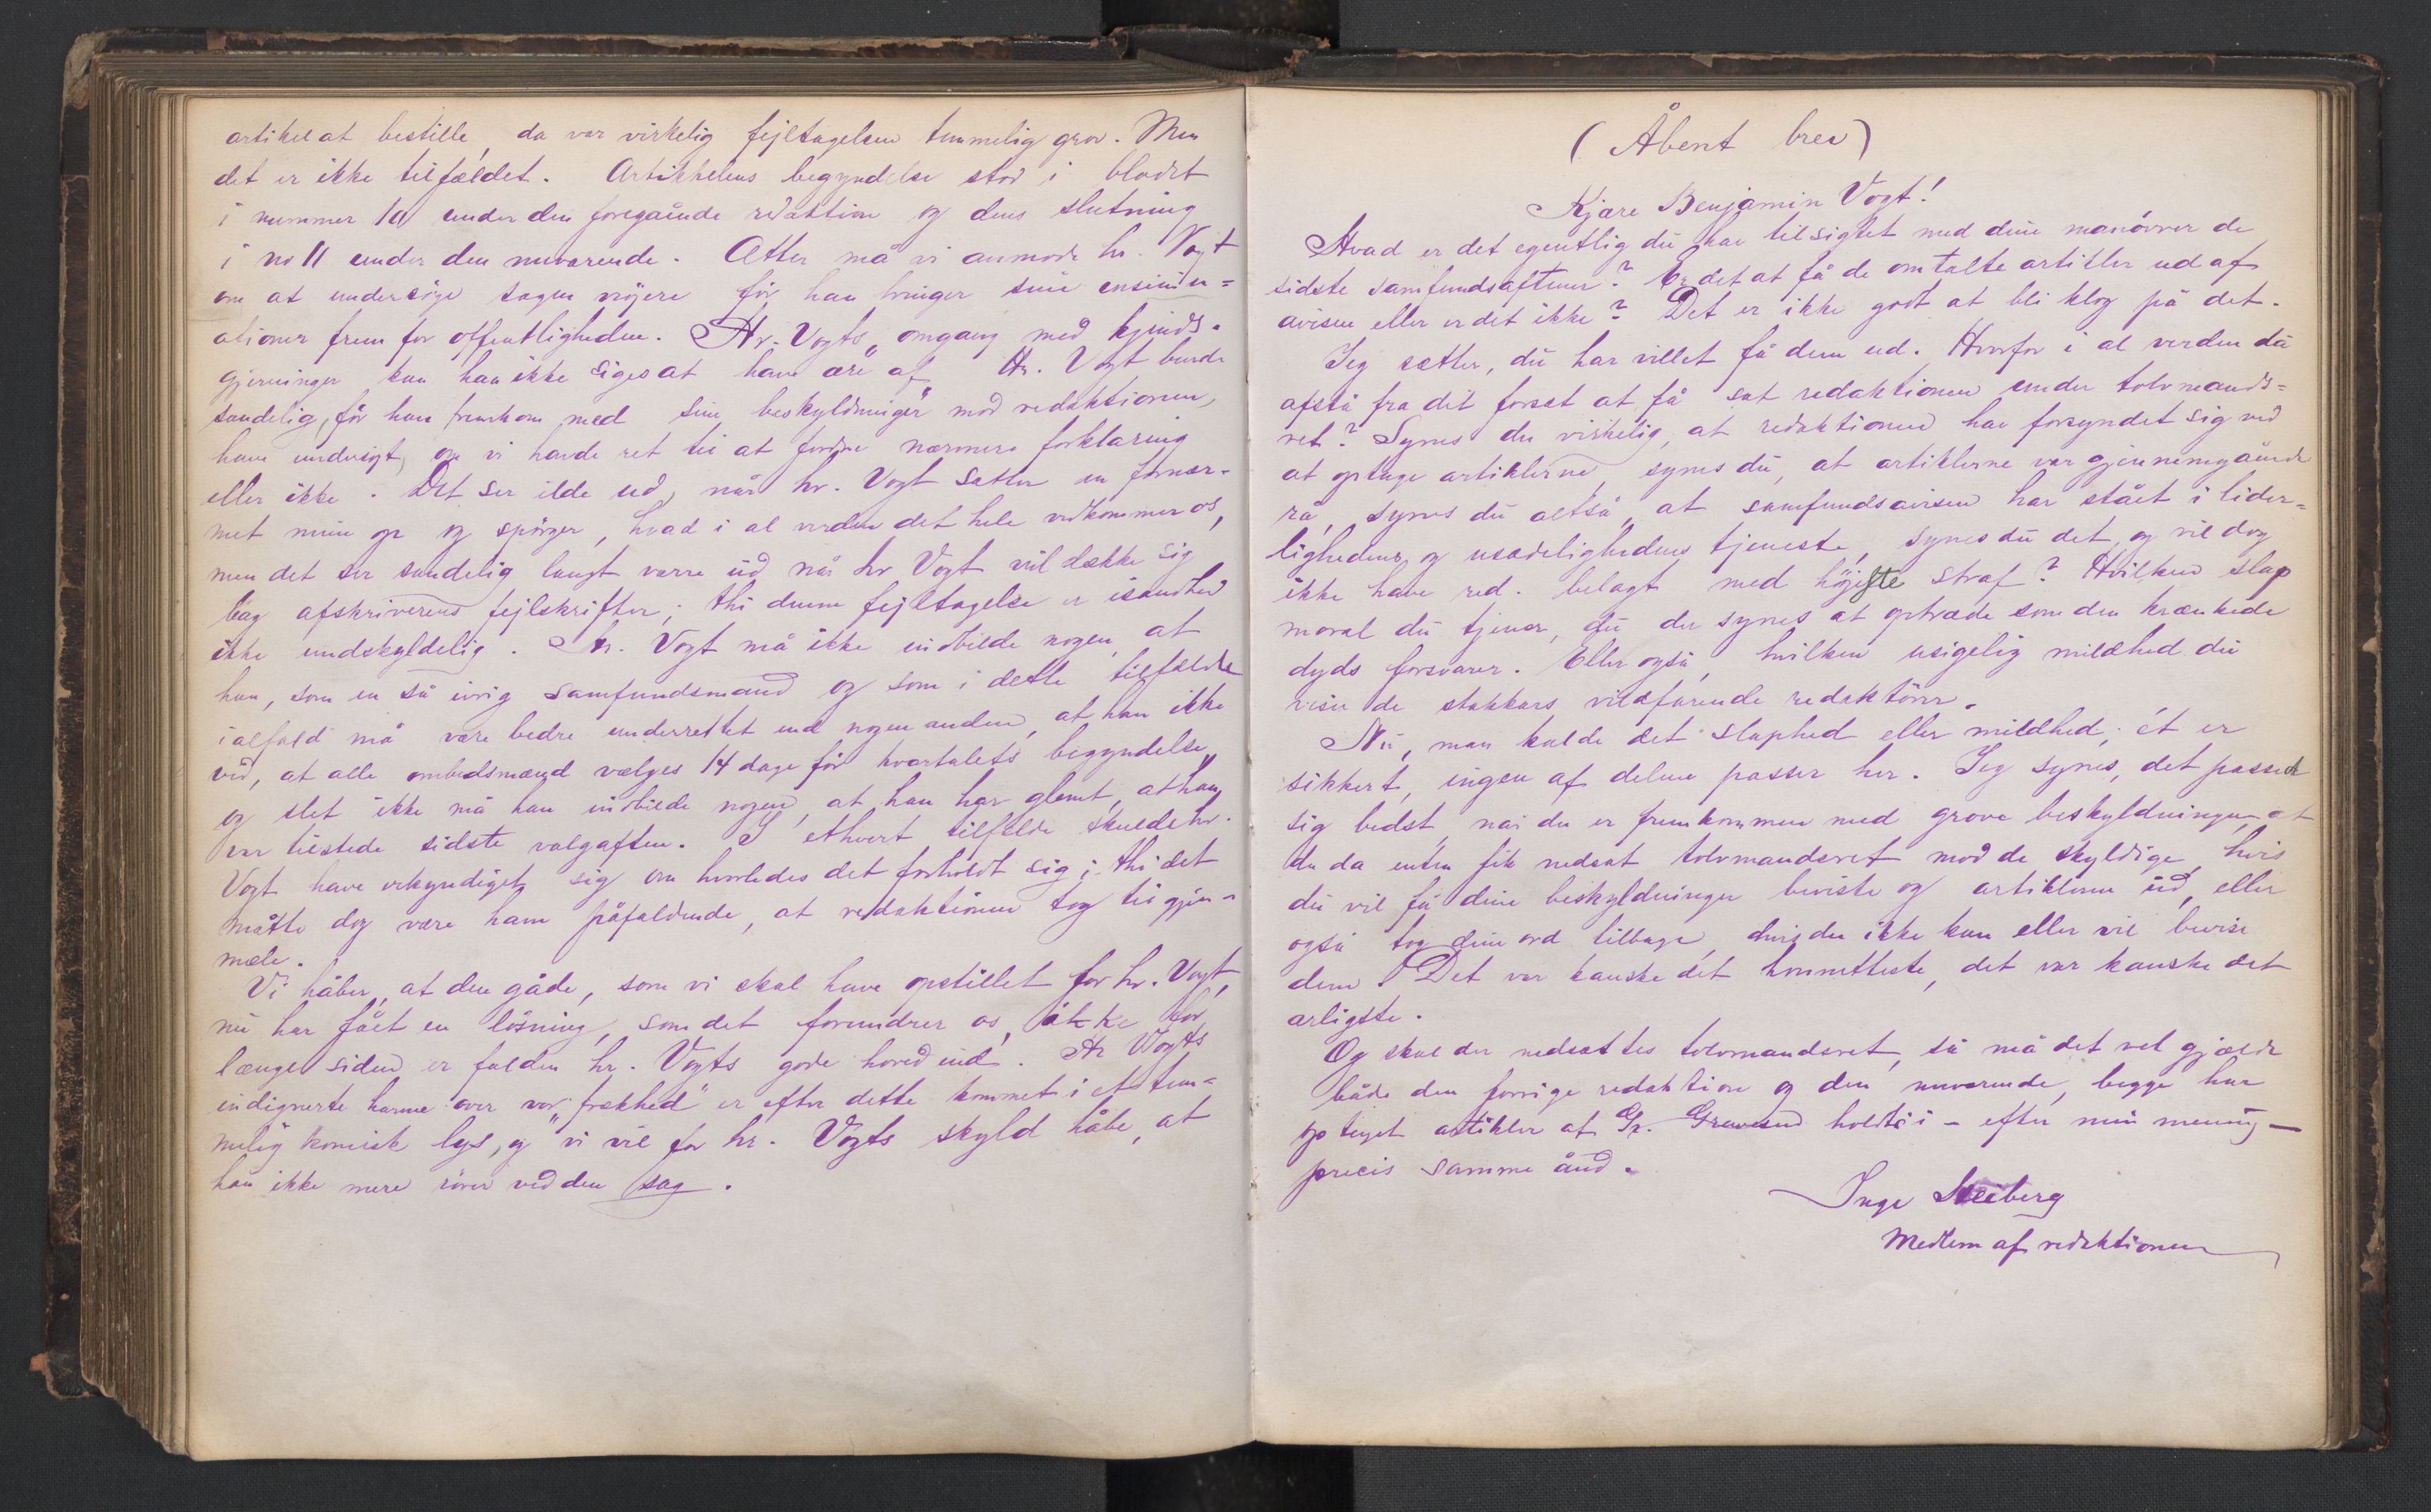 artikel at bestille, da var virkelig fejltagelsen temmelig grov. Men
det er ikke tilfældet. Artikkelens begyndelse stod i bladet
i nummer 10 under den foregående redaktion og dens slutning
i no 11 under den nuværende. Atter må vi anmode hr. Vogt
om at undersöge sagen nöjere för han bringer sine ensinu=
ationer frem for offentligheden. Hr. Vogts "omgang med kjends-
gjerninger kan han ikke siges at have ære af" Hr. Vogt burde
sandelig, för han fremkom med sine beskyldninger mod redaktionen,
have undersögt, om vi havde ret til at fordre nærmere forklaring
eller ikke. Det ser ilde ud, når hr. Vogt sætter en fornær-
met mine op og spörger, hvad i al verden det hele vedkommer os,
men det ser sandelig langt værre ud når hr Vogt vil dække sig
bag afskriverens fejlskrifter; thi denne fejltagelse er isandhed
ikke undskyldelig. Hr. Vogt må ikke indbilde nogen, at
han, som en så ivrig samfundsmand og som i dette tilfælde
ialfald må være bedre underrettet end nogen anden, at han ikke
ved, at alle ombudsmænd vælges 14 dage för kvartalets begyndelse,
og slet ikke må han indbilde nogen, at han har glemt, at han
var tilstede sidste valgaften. I ethvert tilfælde skulde hr.
Vogt have erkyndiget sig om hvorledes det forholdt sig; thi det
måtte dog være ham påfaldende, at redaktionen tog til gjen-
mæle.
Vi håber, at den gåde, som vi skal have opstillet for hr. Vogt,
nu har fået en lösning, som det forundrer os, ikke for
længe siden er falden hr. Vogts gode hoved ind. Hr Vogts
indignerte harme over vor "frækhed" er efter dette kommet i et tem=
melig komisk lys, og vi vil for hr. Vogts skyld håbe, at
han ikke mere rörer ved den sag.
(Åbent brev)
Kjære Benjamin Vogt!
Hvad er det egentlig du har tilsigtet med dine manövrer de
sidste samfundsaftener? Er det at få de omtalte artikler ud af
avisen eller er det ikke? Det er ikke godt at bli klog på det.
Jeg sætter, du har villet få dem ud. Hvorfor i al verden da
afstå fra dit forsæt at få sat redaktionen under tolvmands=
ret? Synes du virkelig, at redaktionen har forsyndet sig ved
at optage artiklerne, synes du, at artiklerne var gjennemgående
rå, synes du altså, at samfundsavisen har stået i lider=
lighedens og usædelighedens tjeneste, synes du det, og vil dog
ikke have red. belagt med höjeste straf? Hvilken slap
moral du tjener, du der synes at optræde som den krænkede
dyds forsvarer. Eller også, hvilken usigelig mildhed du
viser de stakkars vildfarende redaktörer.
Nu, man kalde det slaphed eller mildhed; ét er
sikkert, ingen af delene passer her. Jeg synes, det passede
sig bedst, når du er fremkommen med grove beskyldninger, at
du da enten fik nedsat tolvmandsret mod de skyldige, hvis
du vil få dine beskyldninger beviste og artiklerne ud, eller
også tog dine ord tilbage, hvis du ikke kan eller vil bevise
dem. Det var kanske det honnetteste, det var kanske det
ærligste.
Og skal der nedsættes tolvmandsret, så må det vel gjælde
både den forrige redaktion og den nuværende, begge har
optaget artikler af Gr. holdt i – efter min mening –
precis samme ånd.
Inge
Medlem af redaktionen